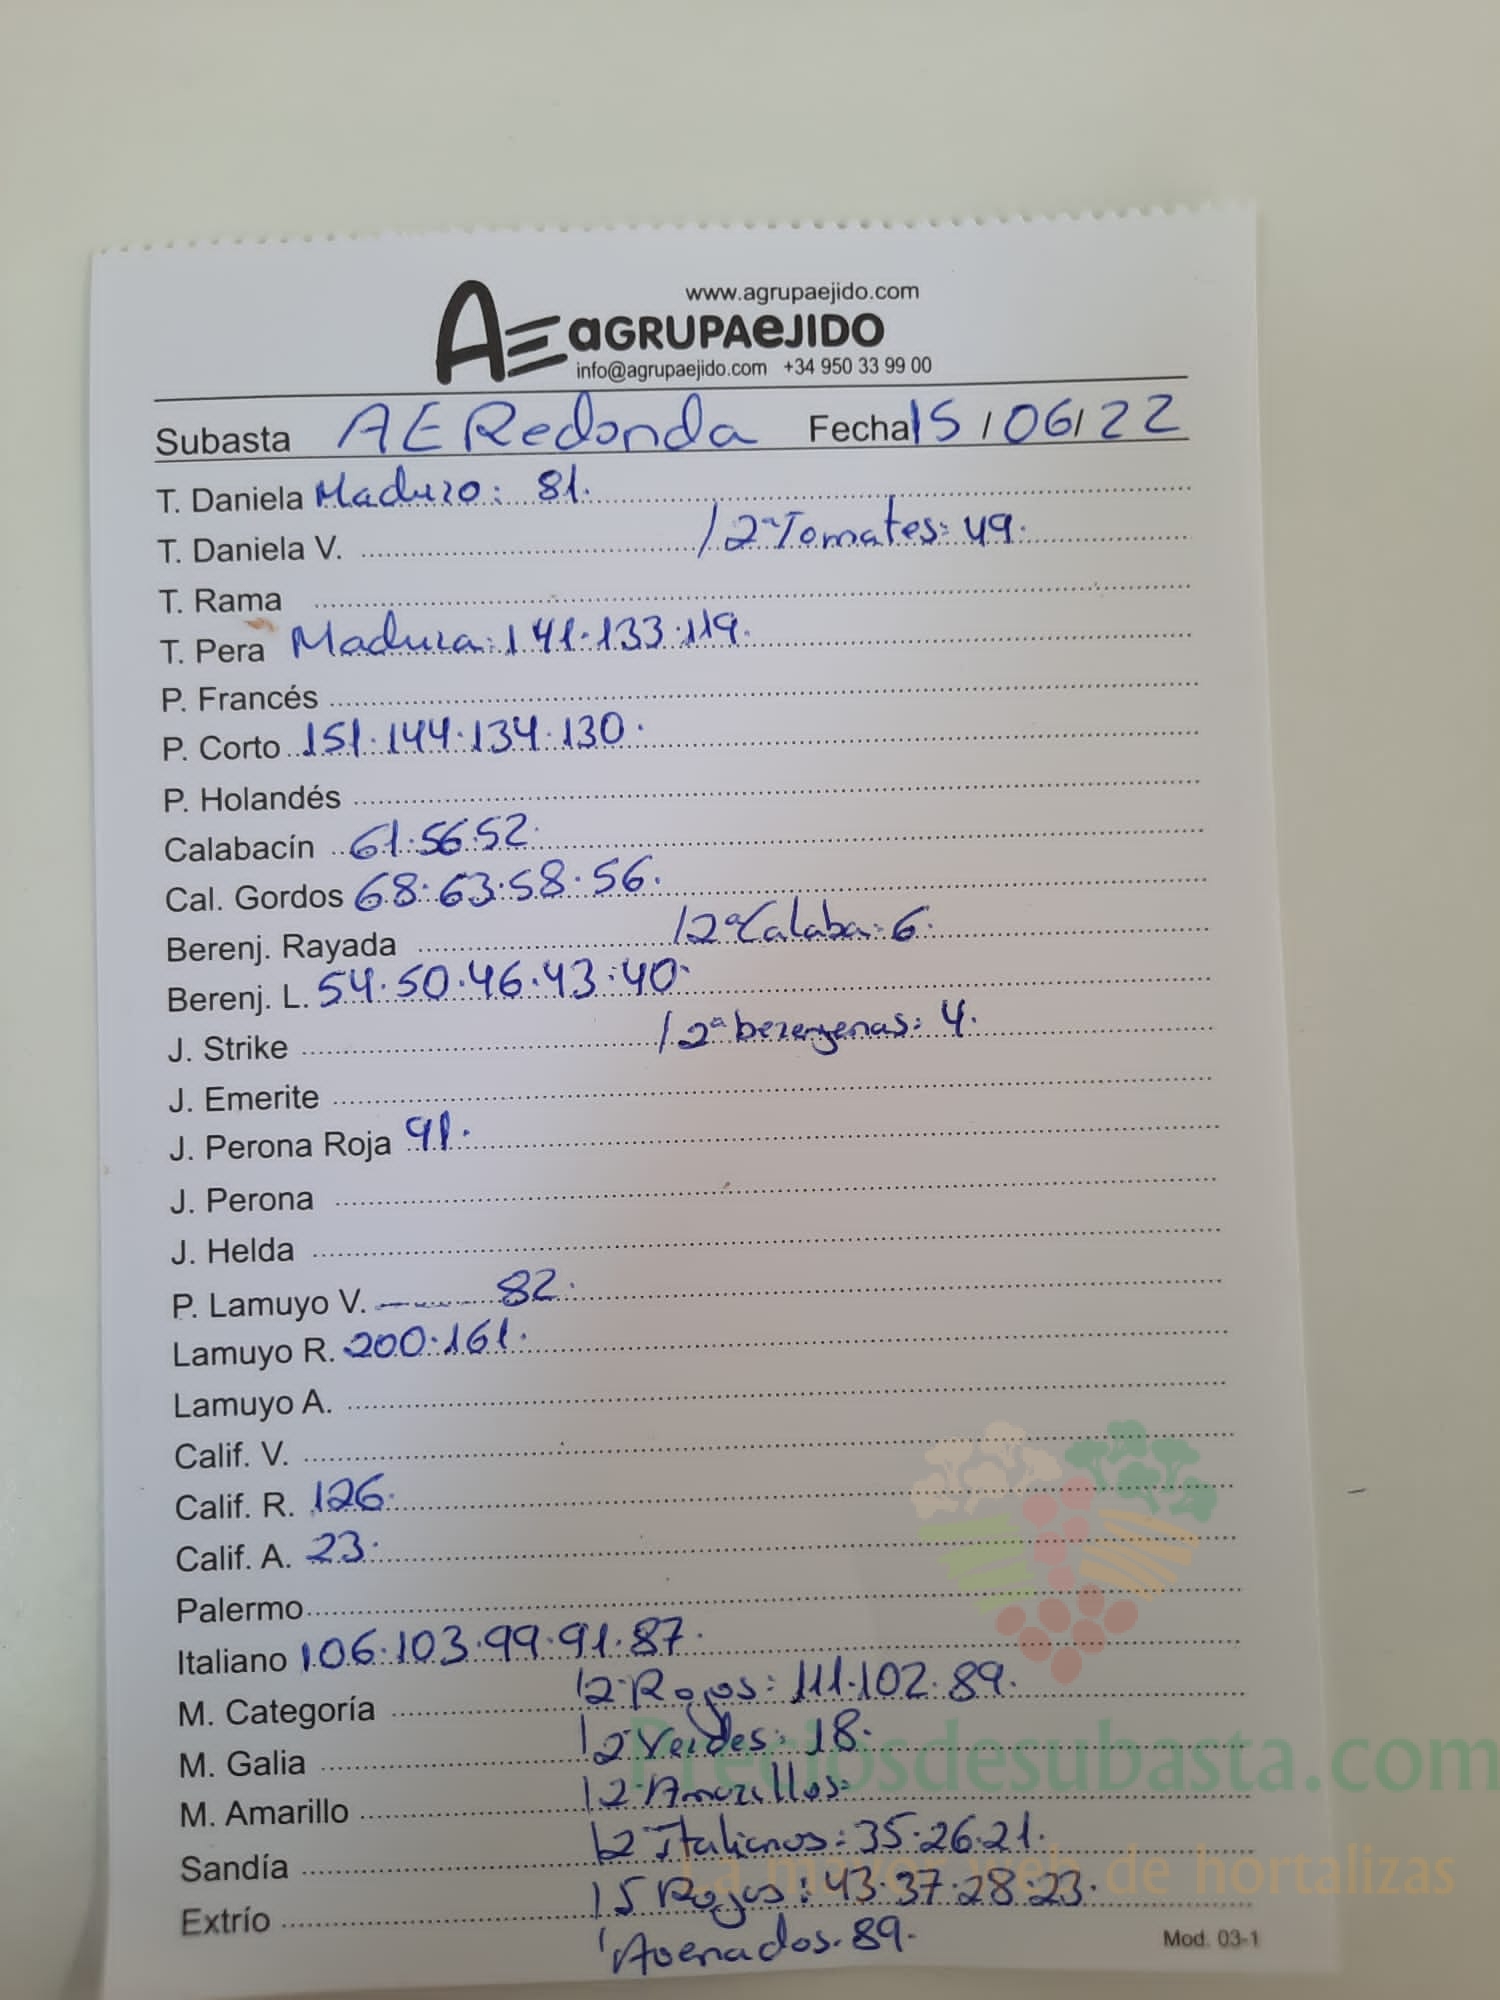 www.agrupaejido.com
AE aGRUPAeJIDO
info@agrupaejido.com +34 950 33 99 00
Subasta AE Redonda Fecha 15/06/22
T. Daniela Maduro: 81.
T. Daniela V. / 2ª Tomates: 49.
T. Rama
T. Pera Madura: 141.133.119.
P. Francés
P. Corto 151.144.134.130.
P. Holandés
Calabacín 61.56.52.
Cal. Gordos 68.63.58.56.
Berenj. Rayada / 2ª Calaba: 6.
Berenj. L. 54.50.46.43.40.
J. Strike / 2ª berengenas: 4.
J. Emerite
J. Perona Roja 91.
J. Perona
J. Helda
P. Lamuyo V. 82.
Lamuyo R. 200.161.
Lamuyo A.
Calif. V.
Calif. R. 126.
Calif. A. 23.
Palermo
Italiano 106.103.99.91.87.
M. Categoría / 2ª Rojos: 111.102.89.
M. Galia / 2ª Verdes: 18.
M. Amarillo / 2ª Amarillos:
Sandía / 2ª Italianos: 35.26.21.
Extrío / 5 Rojos: 43.37.28.23.
/ Asenados. 89.
Mod. 03-1
Preciosdesubasta.com
La mayor web de hortalizas